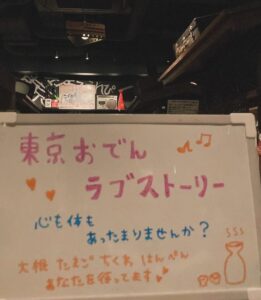 東京おでん
ラブストーリー
心も体も
あったまりませんか?
大根 たまご ちくわ はんぺん
あなたを待ってます